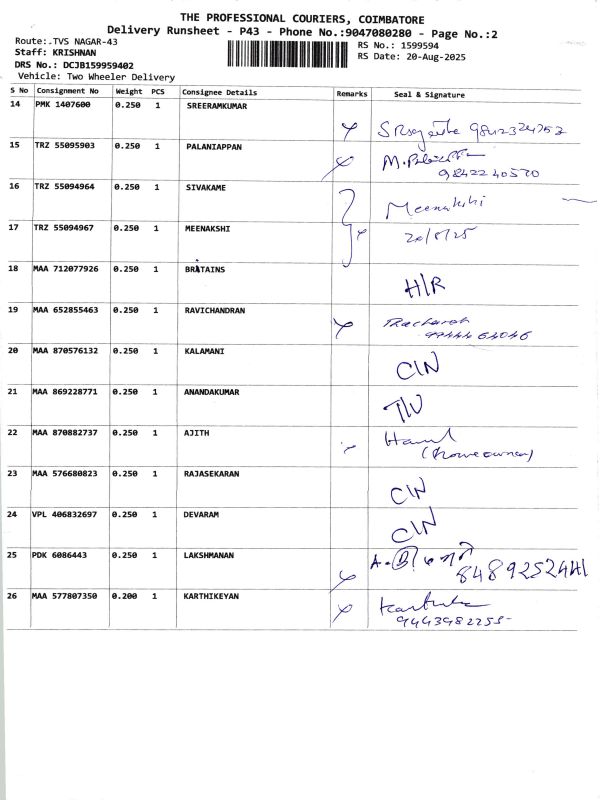 THE PROFESSIONAL COURIERS, COIMBATORE
Delivery Runsheet - P43 - Phone No.:9047080280 - Page No.:2
Route:.TVS NAGAR-43
RS No.: 1599594
Staff: KRISHNAN
RS Date: 20-Aug-2025
DRS No.: DCJB159959402
Vehicle: Two Wheeler Delivery
S No Consignment No Weight PCS Consignee Details Remarks Seal & Signature
14 PMK 1407600 0.250 1 SREERAMKUMAR
15 TRZ 55095903 0.250 1 PALANIAPPAN
9842240570
16 TRZ 55094964 0.250 1 SIVAKAME
Meenakshi
17 TRZ 55094967 0.250 1 MEENAKSHI
20/8/25
18 MAA 712077926 0.250 1 BRITAINS
H/R
19 MAA 652855463 0.250 1 RAVICHANDRAN
20 MAA 870576132 0.250 1 KALAMANI
C/N
21 MAA 869228771 0.250 1 ANANDAKUMAR
22 MAA 870882737 0.250 1 AJITH
23 MAA 576680823 0.250 1 RAJASEKARAN
C/N
24 VPL 406832697 0.250 1 DEVARAM
C/N
25 PDK 6086443 0.250 1 LAKSHMANAN
26 MAA 577807350 0.200 1 KARTHIKEYAN
9443982255